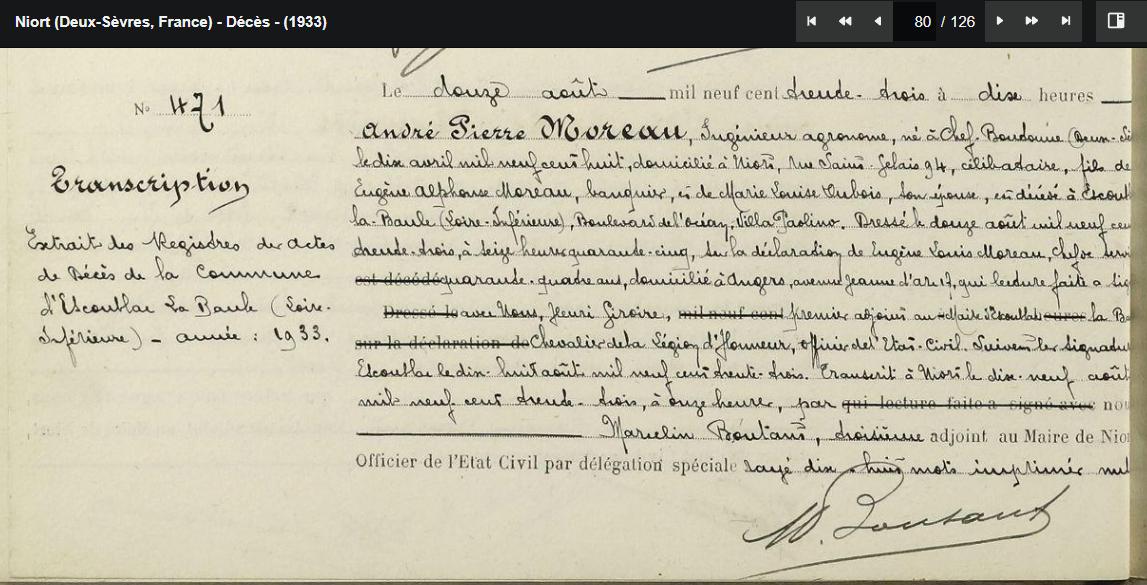 Niort (Deux-Sèvres, France) - Décès - (1933)
80 / 126
Le douze août mil neuf cent trente-trois à dix heures
N° 471
André Pierre Moreau, Ingénieur agronome, né à Chef-Boutonne (Deux-Sè
le dix avril mil neuf cent huit, domicilié à Niort, rue Saint-Gelais 94, célibataire, fils de
Transcription
Eugène Alphonse Moreau, banquier, et de Marie Louise Dubois, son épouse, est décédé à Escoub
la-Baule (Loire-Inférieure), Boulevard de l'océan, Villa Paolino. Dressé le douze août mil neuf cen
Extrait des Registres des actes
trente-trois, à seize heures quarante-cinq, sur la déclaration de Eugène Louis Moreau, chef de servi
de Décès de la Commune
est décédé quarante-quatre ans, domicilié à Angers, avenue Jeanne d'arc 17, qui lecture faite a sig
d'Escoublac La Baule (Loire-
Dressé le avec Nous, Henri Giroire, mil neuf cent premier adjoint au Maire d'Escoublac eures la Ba
Inférieure) - année : 1933.
sur la déclaration de Chevalier de la Légion d'Honneur, officier de l'Etat-Civil. Suivent les signatu
Escoublac le dix-huit août mil neuf cent trente-trois. Transcrit à Niort le dix-neuf août
mil neuf cent trente-trois, à onze heures, par qui lecture faite a signé avec nou
Marcelin Boutant, troisième adjoint au Maire de Nior
Officier de l'Etat Civil par délégation spéciale rayé dix-huit mots imprimés nul
M. Boutant